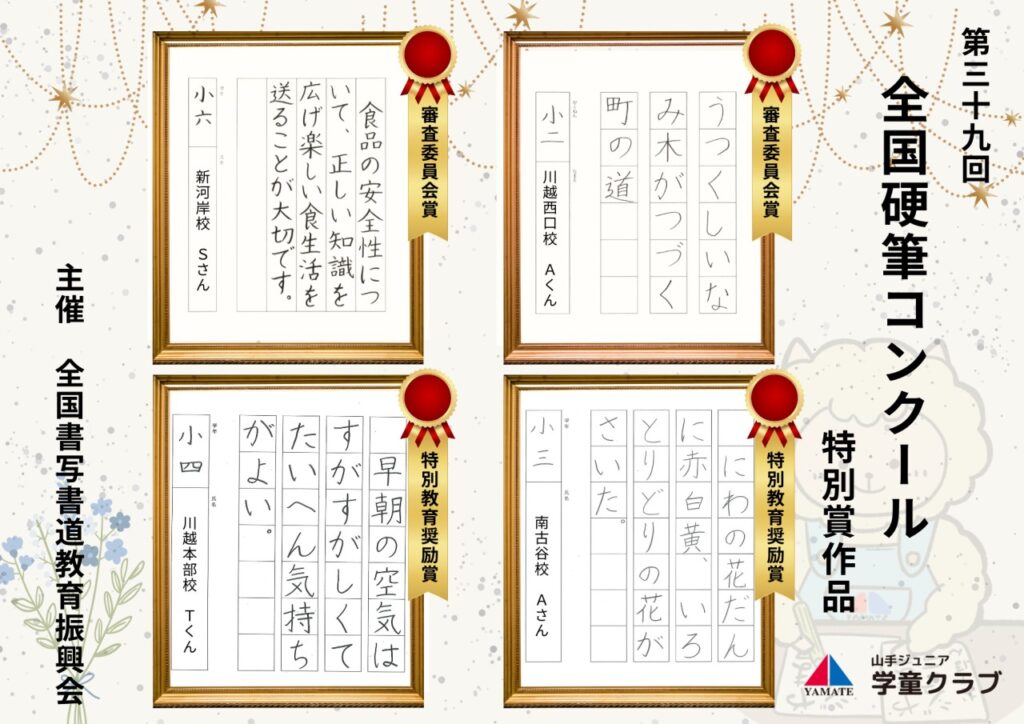 第三十九回
全国硬筆コンクール
特別賞作品
審査委員会賞
うつくしいな
み木がつづく
町の道
小二
川越西口校 Aくん
審査委員会賞
食品の安全性につ
いて、正しい知識を
広げ楽しい食生活を
送ることが大切です。
小六
新河岸校 Sさん
特別教育奨励賞
にわの花だん
に赤白黄、いろ
とりどりの花が
さいた。
学年
小三
氏名
南古谷校 Aさん
特別教育奨励賞
早朝の空気は
すがすがしくて
たいへん気持ち
がよい。
学年
小四
氏名
川越本部校 Tくん
主催 全国書写書道教育振興会
YAMATE
山手ジュニア
学童クラブ